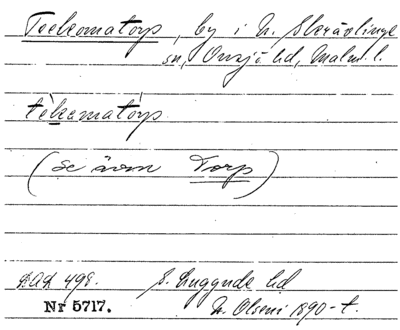 Toekomatorp, by i N. Skrävlinge
sn, Onsjö hd, Malm. l.
tèkomatòrp
(se även Torp)
DAL 498. S. Luggude hd
Nr 5717. N. Olseni 1890-t.